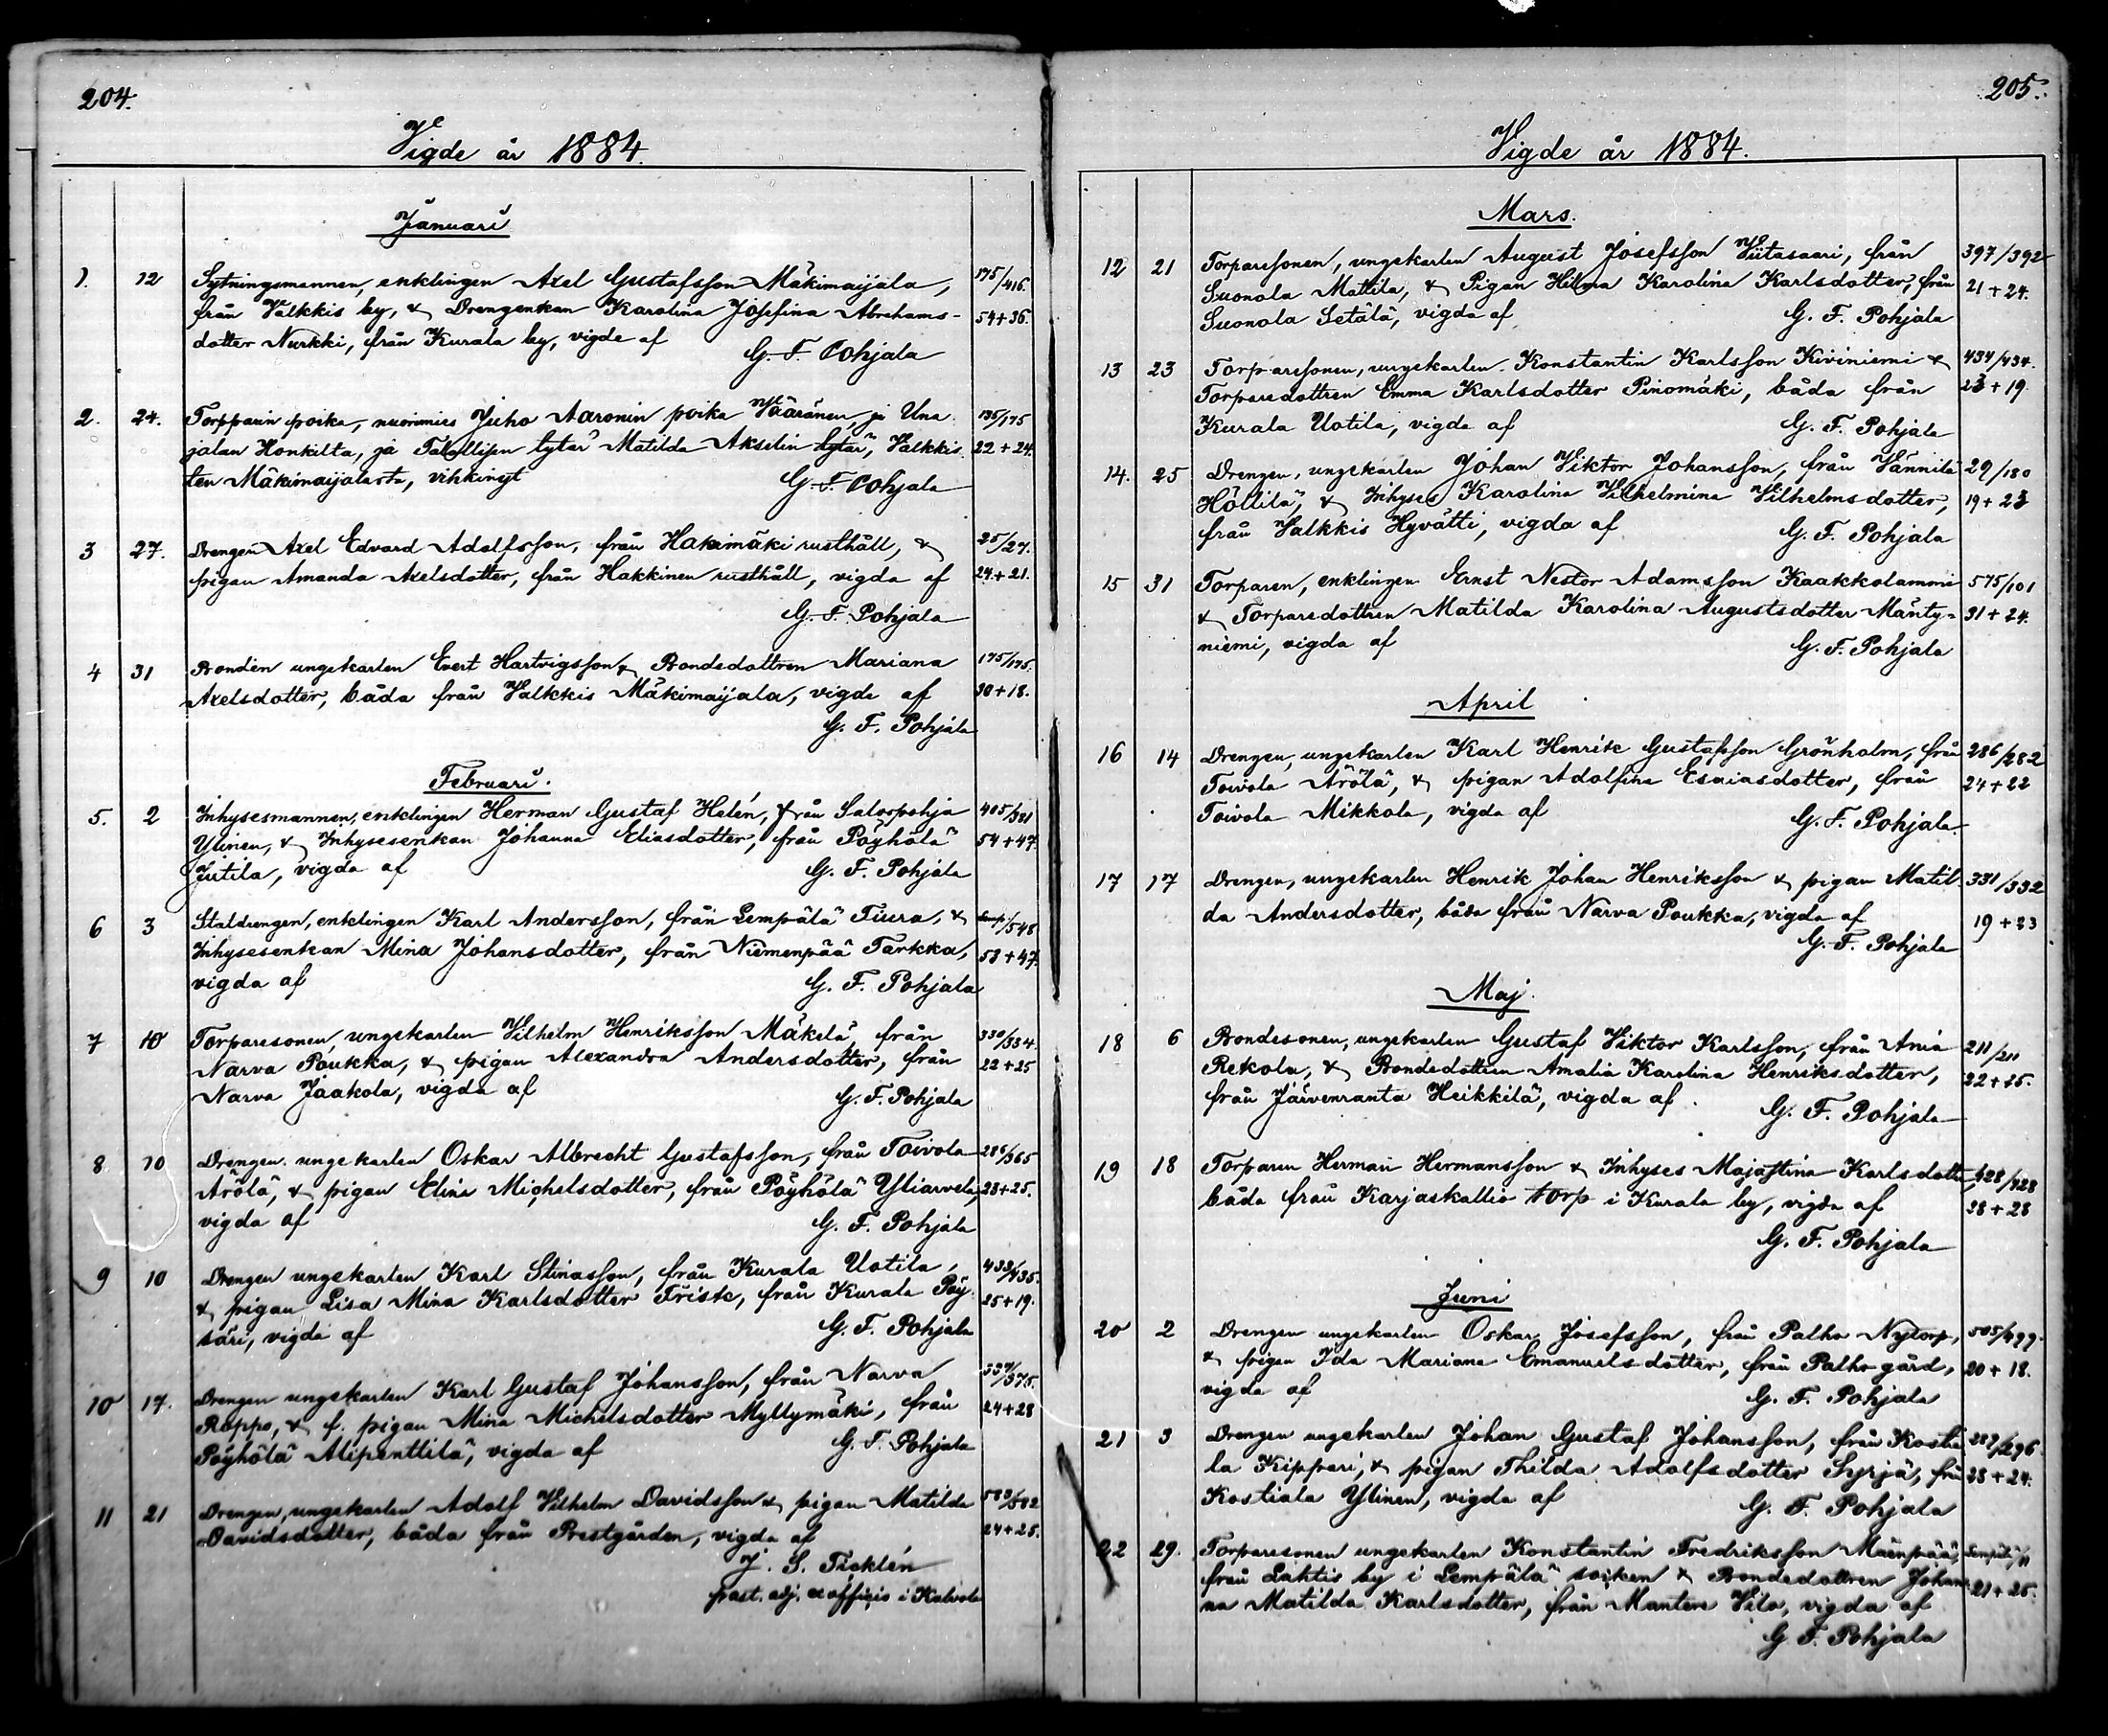 204.
Vigde år 1884.
Januari
1. 12 Sytningsmannen, enklingen Axel Gustafsson Mäkimaijala, 175/416.
från Valkkis by, & Drengenkan Karolina Josefina Abrahams- 54+36.
dotter Nurkki, från Kurala by, vigde af G. F. Pohjala
2. 24. Torpparin poika, nuorimies Juho Aaronin poika Vääränen, ja Una 195/175
jalan Honkilta, ja Talollisen tytär Matilda Akselin tytär, Valkkis 22+24.
ten Mäkimaijalasta, vihkinyt G. F. Pohjala
3 27. Drengen Axel Edvard Adolfsson, från Hakimäki rusthåll, & 25/27.
pigan Amanda Axelsdotter, från Hakkinen rusthåll, vigda af 24+21.
G. F. Pohjala
4 31 Bonden ungekarlen Evert Hartvigsson & Bondedottren Mariana 175/175.
Axelsdotter, båda från Valkkis Mäkimaijala, vigde af 30+18.
G. F. Pohjala
Februari.
5. 2 Inhysesmannen, enklingen Herman Gustaf Helén, från Satorpohja 405/321
Ylinen, & Inhysesenkan Johanna Eliasdotter, från Pöyhölä 54+47.
Jutila, vigda af G. F. Pohjala
6 3 Staldrengen, enklingen Karl Andersson, från Lempälä Tiura, & Lemp/548
Inhysesenkan Mina Johansdotter, från Niemenpää Tarkka, 53+47.
vigda af G. F. Pohjala
7 10 Torparesonen, ungekarlen Vilhelm Henriksson Mäkelä, från 330/334.
Narva Poukka, & pigan Alexandra Andersdotter, från 22+25
Narva Jaakola, vigda af G. F. Pohjala
8. 10 Drengen ungekarlen Oskar Albrecht Gustafsson, från Toivola 286/365
Arölä, & pigan Elina Michelsdotter, från Pöyhölä Yliarvela, 23+25.
vigda af G. F. Pohjala
9 10 Drengen ungekarlen Karl Stinasson, från Kurala Uotila, 433/435.
& pigan Lisa Mina Karlsdotter Frisk, från Kurala Pöy- 25+19.
säri, vigda af G. F. Pohjala
10 17. Drengen ungekarlen Karl Gustaf Johansson, från Narva 339/375.
Roppo, & f. pigan Mina Michelsdotter Myllymäki, från 24+28
Pöyhölä Alipenttilä, vigda af G. F. Pohjala
11 21 Drengen, ungekarlen Adolf Vilhelm Davidsson & pigan Matilda 582/582
Davidsdotter, båda från Prestgården, vigda af 24+25.
J. S. Ticklén
past. adj. ex officio i Kalvola
205.
Vigde år 1884.
Mars.
12 21 Torparesonen, ungekarlen August Josefsson Viitasaari, från 397/392
Suonola Mattila, & Pigan Hilma Karolina Karlsdotter, från 21+24.
Suonola Setälä, vigda af G. F. Pohjala
13 23 Torparesonen, ungekarlen Konstantin Karlsson Kiviniemi & 434/434.
Torparedottren Emma Karlsdotter Pinomäki, båda från 23+19.
Kurala Uotila, vigda af G. F. Pohjala
14. 25 Drengen, ungekarlen Johan Viktor Johansson, från Vännilä 29/180
Höllilä, & Inhyses Karolina Vilhelmina Vilhelmsdotter, 19+23
från Valkkis Hyvätti, vigda af G. F. Pohjala
15 31 Torparen, enklingen Ernst Nestor Adamsson Kaakkolammi 575/101
& Torparedottren Matilda Karolina Augustsdotter Mänty- 31+24.
niemi, vigda af G. F. Pohjala
April
16 14 Drengen, ungekarlen Karl Henrik Gustafsson Grönholm, från 286/282
Toivola Arölä, & pigan Adolfina Esaiasdotter, från 24+22
Toivola Mikkola, vigda af G. F. Pohjala.
17 17 Drengen, ungekarlen Henrik Johan Henriksson & pigan Matil- 331/332
da Andersdotter, båda från Narva Poukka, vigda af 19+23
G. F. Pohjala
Maj.
18 6 Bondesonen, ungekarlen Gustaf Viktor Karlsson, från Ania 211/211
Rekola, & Bondedottren Amalia Karolina Henriksdotter, 22+25.
från Järvenranta Heikkilä, vigda af G. F. Pohjala
19 18 Torparen Herman Hermansson & Inhyses Majastina Karlsdotter, 428/428
båda från Karjaskallio torp i Kurala by, vigda af 38+28
G. F. Pohjala
Juni
20 2 Drengen ungekarlen Oskar Josefsson, från Palho Nytorp, 505/499.
& pigan Ida Mariana Emanuelsdotter, från Palho gård, 20+18.
vigda af G. F. Pohjala
21 3 Drengen ungekarlen Johan Gustaf Johansson, från Kostia 287/296
la Kippari, & pigan Thilda Adolfsdotter Syrjä, från 28+24.
Kostiala Ylinen, vigda af G. F. Pohjala
22 29. Torparesonen ungekarlen Konstantin Fredriksson Mäenpää, Lempälä/11
från Lahtis by i Lempälä soiken & Bondedottren Johan- 21+25.
na Matilda Karlsdotter, från Mantere Vilo, vigda af
G. F. Pohjala